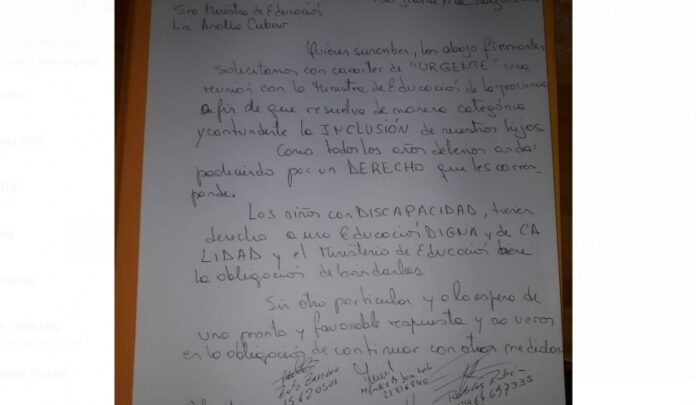 Sra Ministra de Educación
Lic. Analía Cubino
Quienes suscriben, los abajo firmantes
solicitamos con carácter de "URGENTE" una
reunión con la Ministra de Educación de la provincia
a fin de que resuelva de manera categórica
y contundente la INCLUSIÓN de nuestros hijos.
Como todos los años debemos andar
pediendo por un DERECHO que les corres-
ponde.
Los niños con DISCAPACIDAD, tienen
derecho a una Educación DIGNA y de CA
LIDAD y el Ministerio de Educación tiene
la obligación de bandarlas.
Sin otro particular y a la espera de
una pronta y favorable respuesta y no vernos
en la obligación de continuar con otras medidas